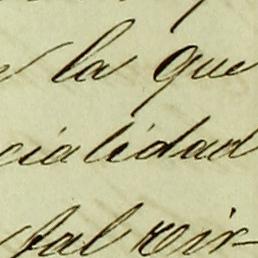 la que
cialidad
tal vir-